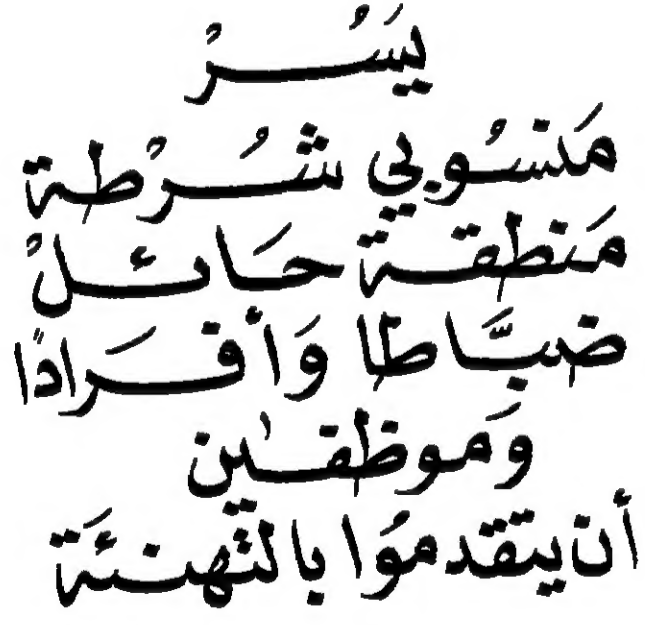 يَسُرْ
مَنسُوبي شُرْطة
مَنطقة حَائلْ
ضبَّاطا وَأفرَادًا
وَموظفين
أن يتقدمُوا بالتهنئَة